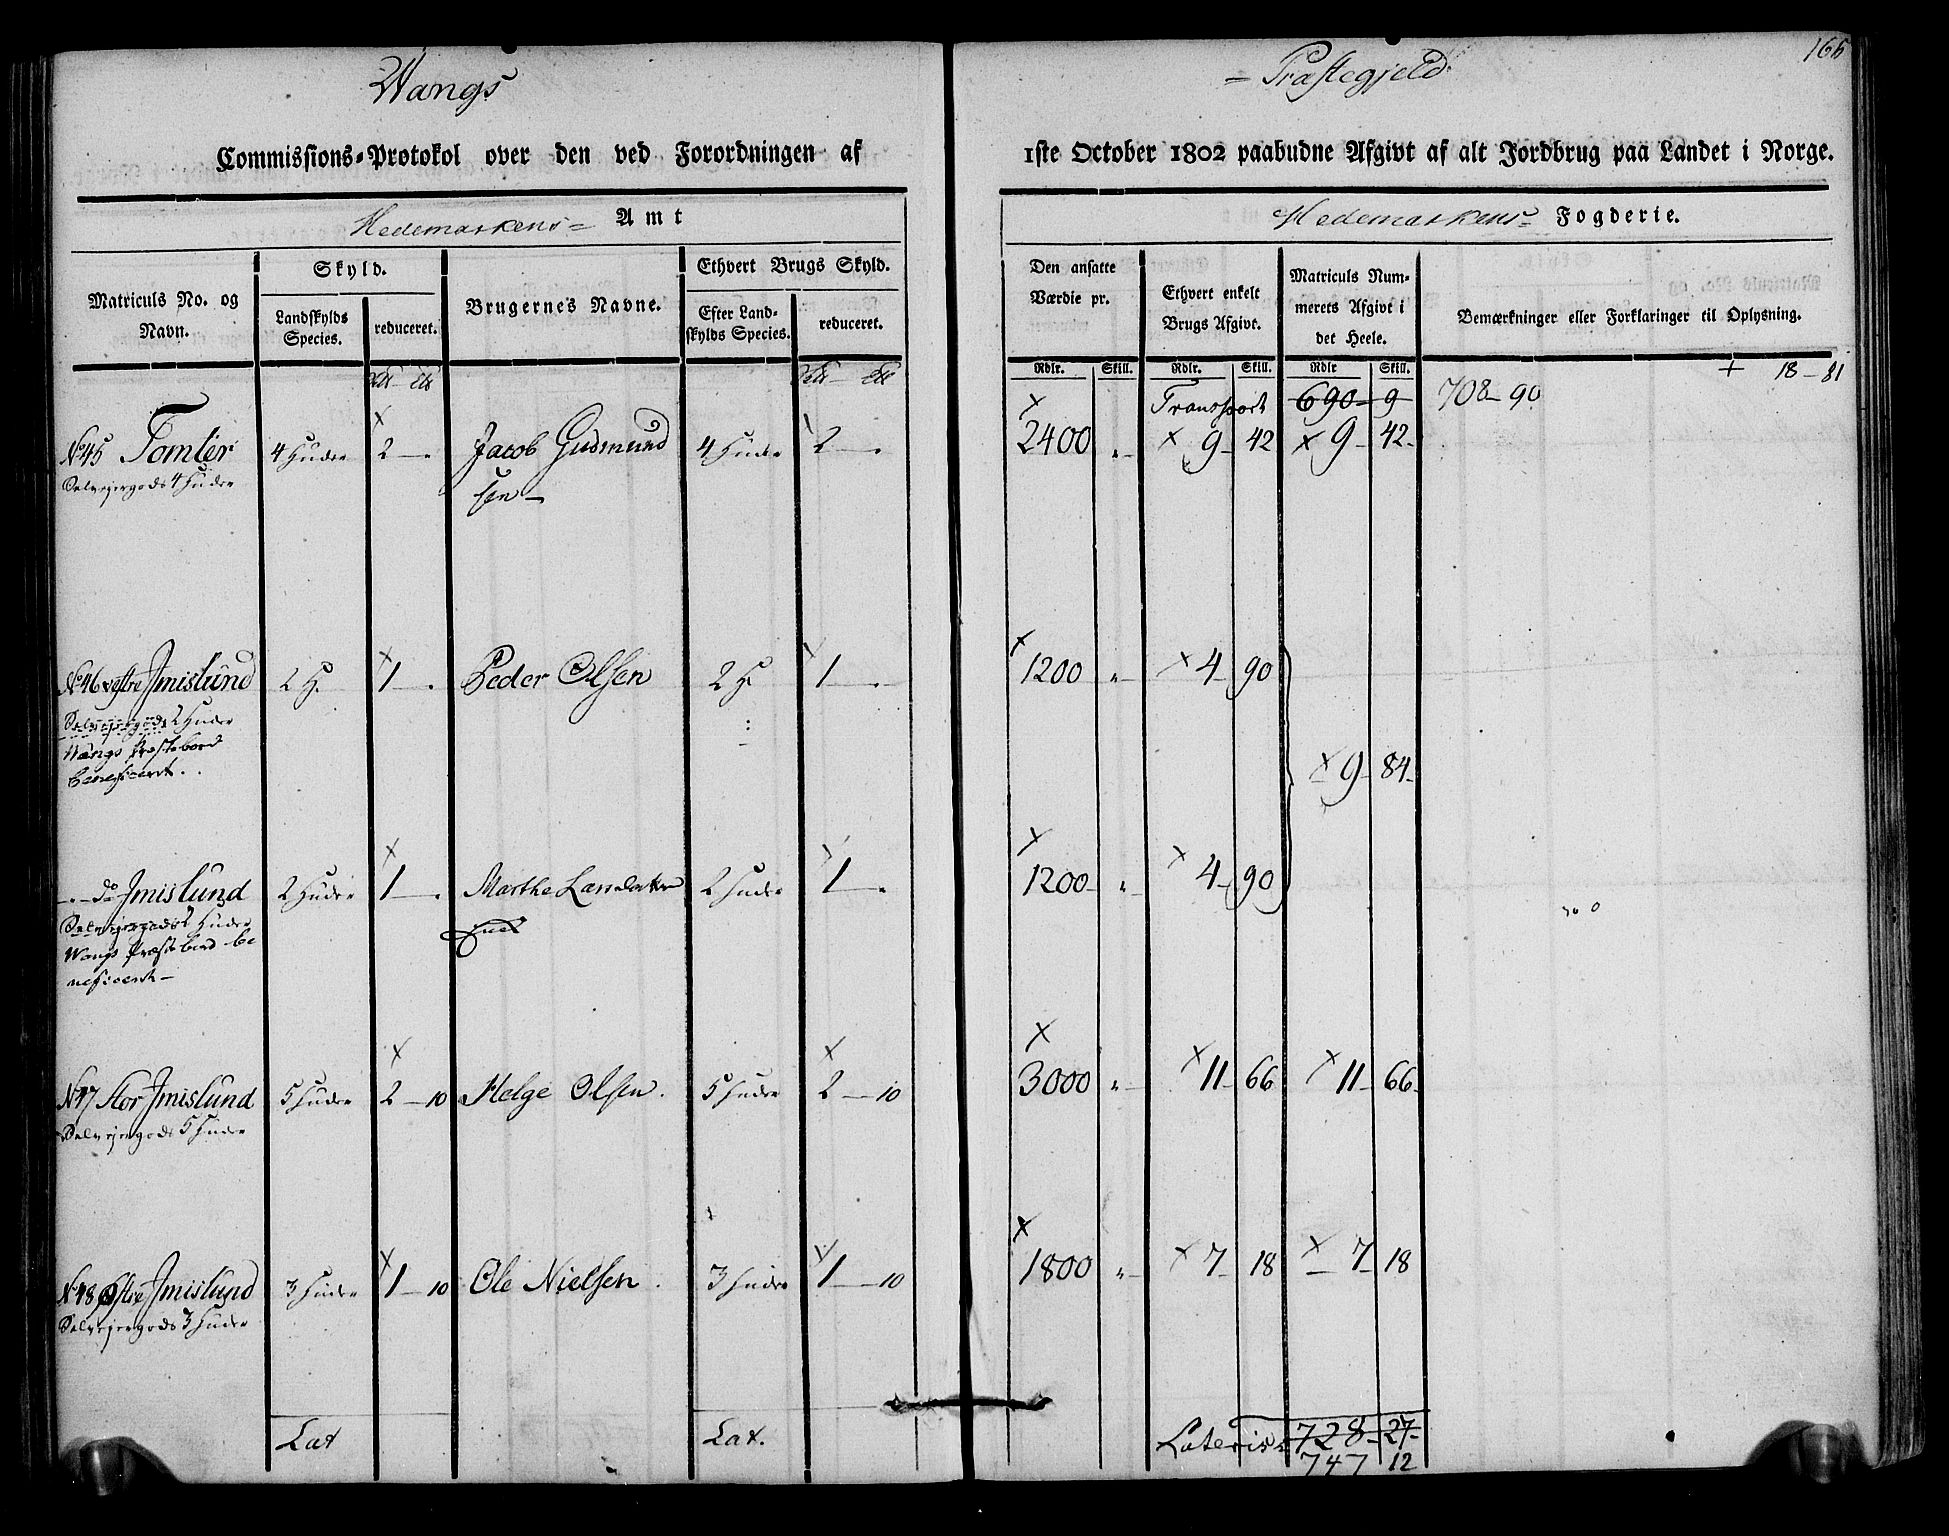 Wangs
= Præstegjeld
Commissions-Protokol over den ved Forordningen af
1ste October 1802 paabudne Afgivt af alt Jordbrug paa Landet i Norge.
Hedemarkens= Amt
Hedemarkens= Fogderie.
Matriculs No. og Navn.
Skyld.
Landskylds Species.
reduceret.
Brugernes Navne.
Ethvert Brugs Skyld.
Efter Landskylds Species.
reduceret.
Den ansatte Værdie pr.
Ethvert enkelt Brugs Afgivt.
Matriculs Nummerets Afgivt i det Heele.
Bemærkninger eller Forklaringer til Oplysning.
Rdlr. Skill. Rdlr. Skill. Rdlr Skill.
+ 18-81
Transport 690-9 708-90
No 45 Tomter 4 Huder 2-. Jacob Gudmund 4 Huder 2-. 2400 "- 9-42 9-42-
Selvejergods 4 Huder
sen-
No 46 vestre Imislund 2 H. 1-. Peder Olsen 2 H. 1-. 1200 "- 4-90
Selvejergods 2 Huder
Wangs Præstebord
beneficeret.
9-84-
-.- do Imislund 2 Huder 1-. Marthe 2 Huder 1-. 1200- "- 4-90
Selvejergods 2 Huder
Wangs Præstebord be
neficeret-
No 47 Stor Imislund 5 Huder 2-10 Helge Olsen. 5 Huder 2-10 3000 "- 11-66 11-66-
Selvejergods 5 Huder
No 48 Østre Imislund 3 Huder 1-10 Ole Nielsen. 3 Huder 1-10 1800 "- 7-18 7-18
Selvejergods 3 Huder
Lat Lat. Lateris 728-27-
747 12